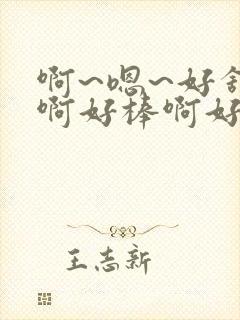 啊~嗯~好舒
啊好棒啊好
王志新